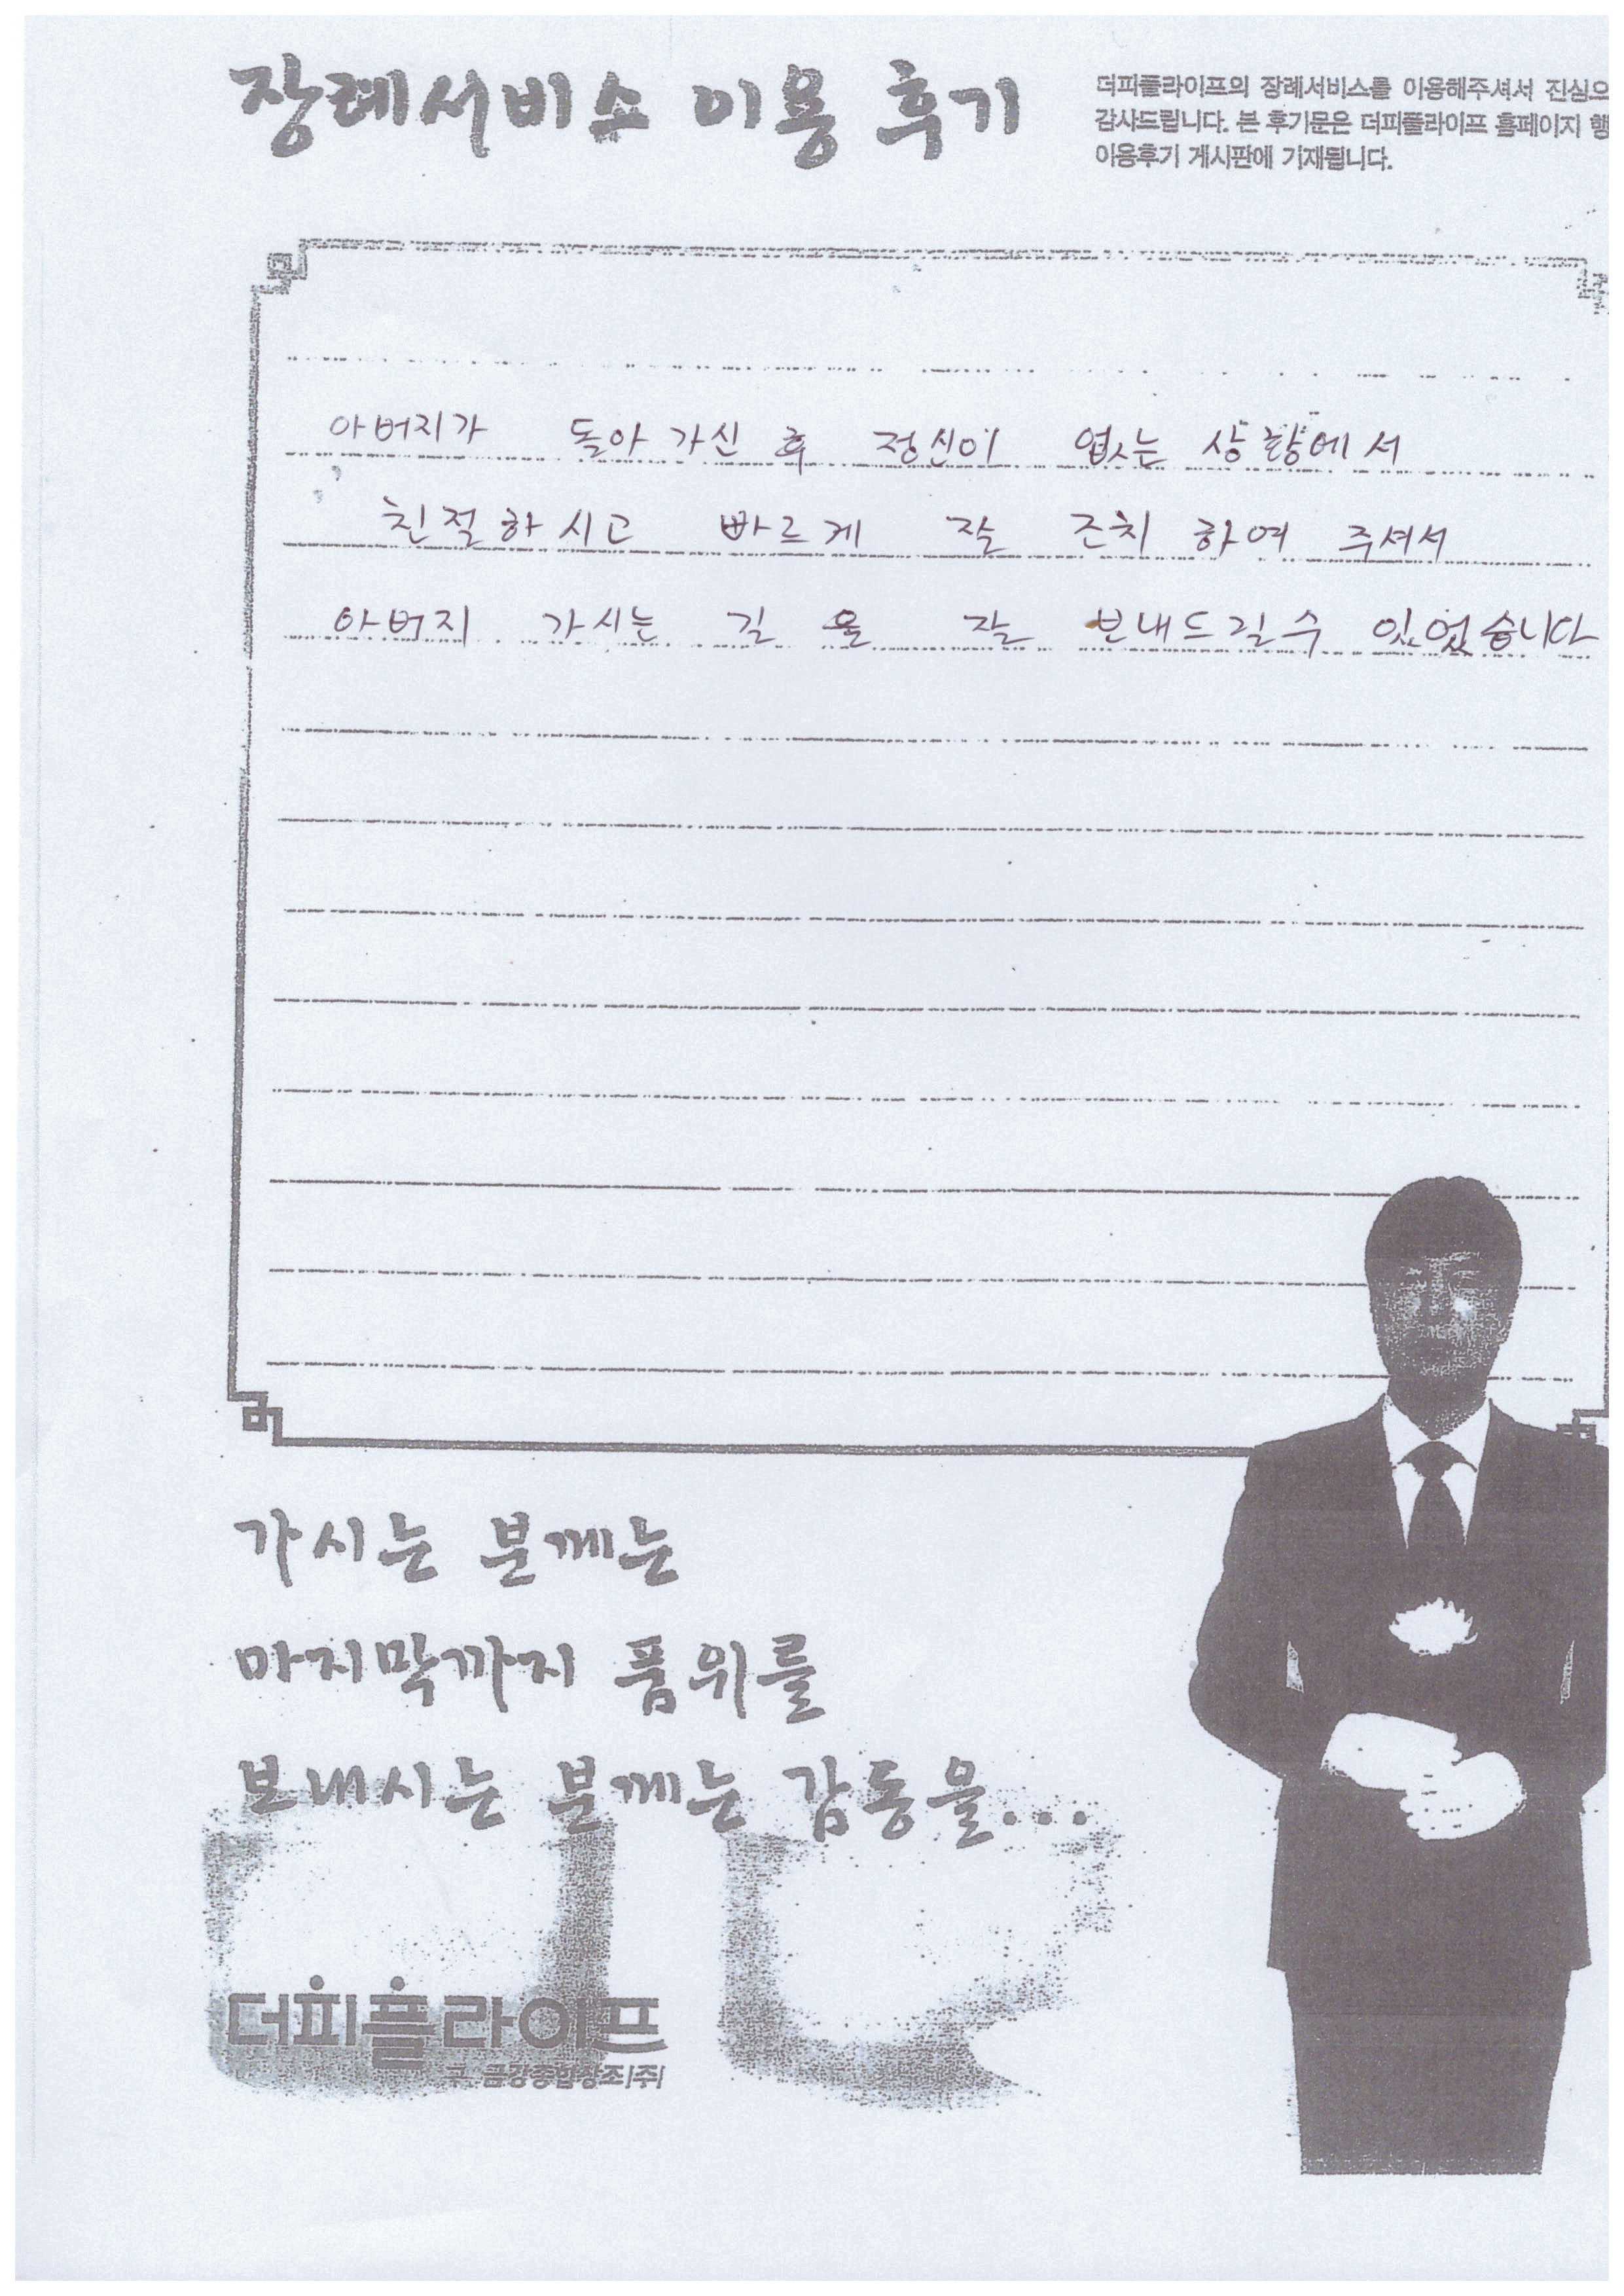 장례서비스 이용 후기
더피플라이프의 장례서비스를 이용해주셔서 진심으
감사드립니다. 본 후기문은 더피플라이프 홈페이지 행
이용후기 게시판에 기재됩니다.
아버지가 돌아 가신 후 정신이 없는 상황에서
친절하시고 빠르게 잘 조치 하여 주셔서
아버지 가시는 길 을 잘 보내드릴수 있었습니다
가시는 분께는
마지막까지 품위를
보내시는 분께는 감동을...
더피플라이프
구. 금강종합상조(주)